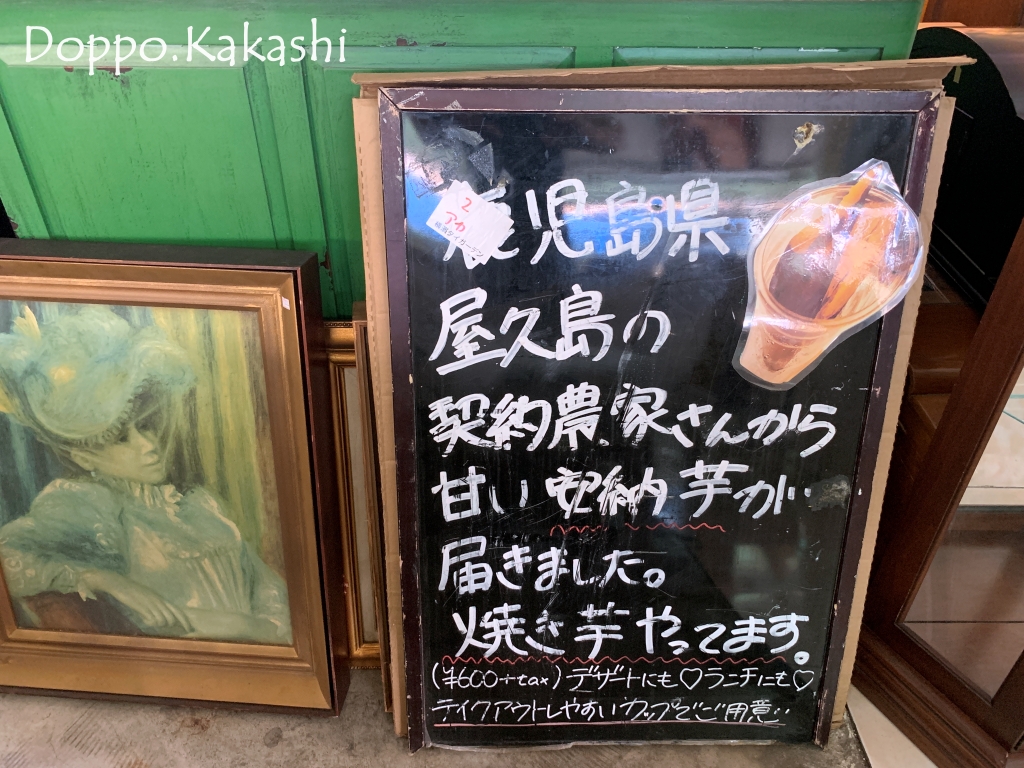 Doppo.Kakashi
2
アカ
鹿児島県
屋久島の
契約農家さんから
甘い安納芋が
届きました。
焼き芋やってます。
(¥600+tax)デザートにも♡ランチにも♡
テイクアウトしやすいカップでご用意